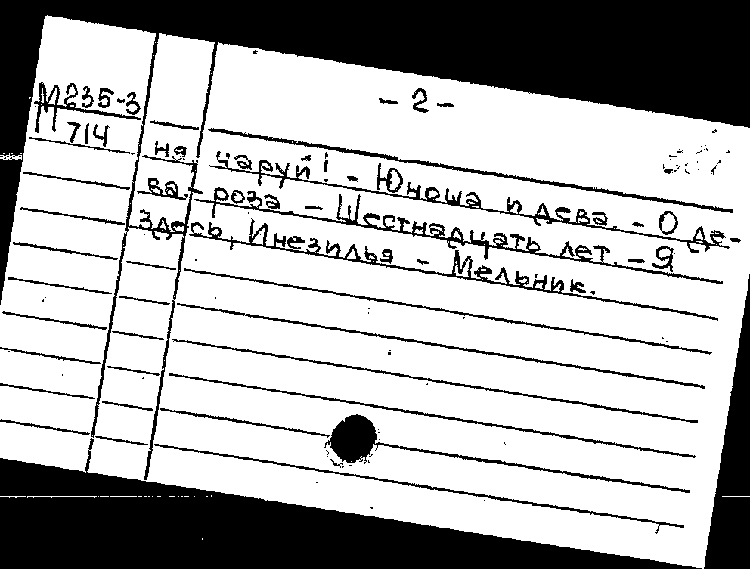 М 235-3
714
- 2 -
ня, чаруй! - Юноша и дева. - О де-
ва - роза. - Шестнадцать лет. - Я
здесь, Инезилья - Мельник.